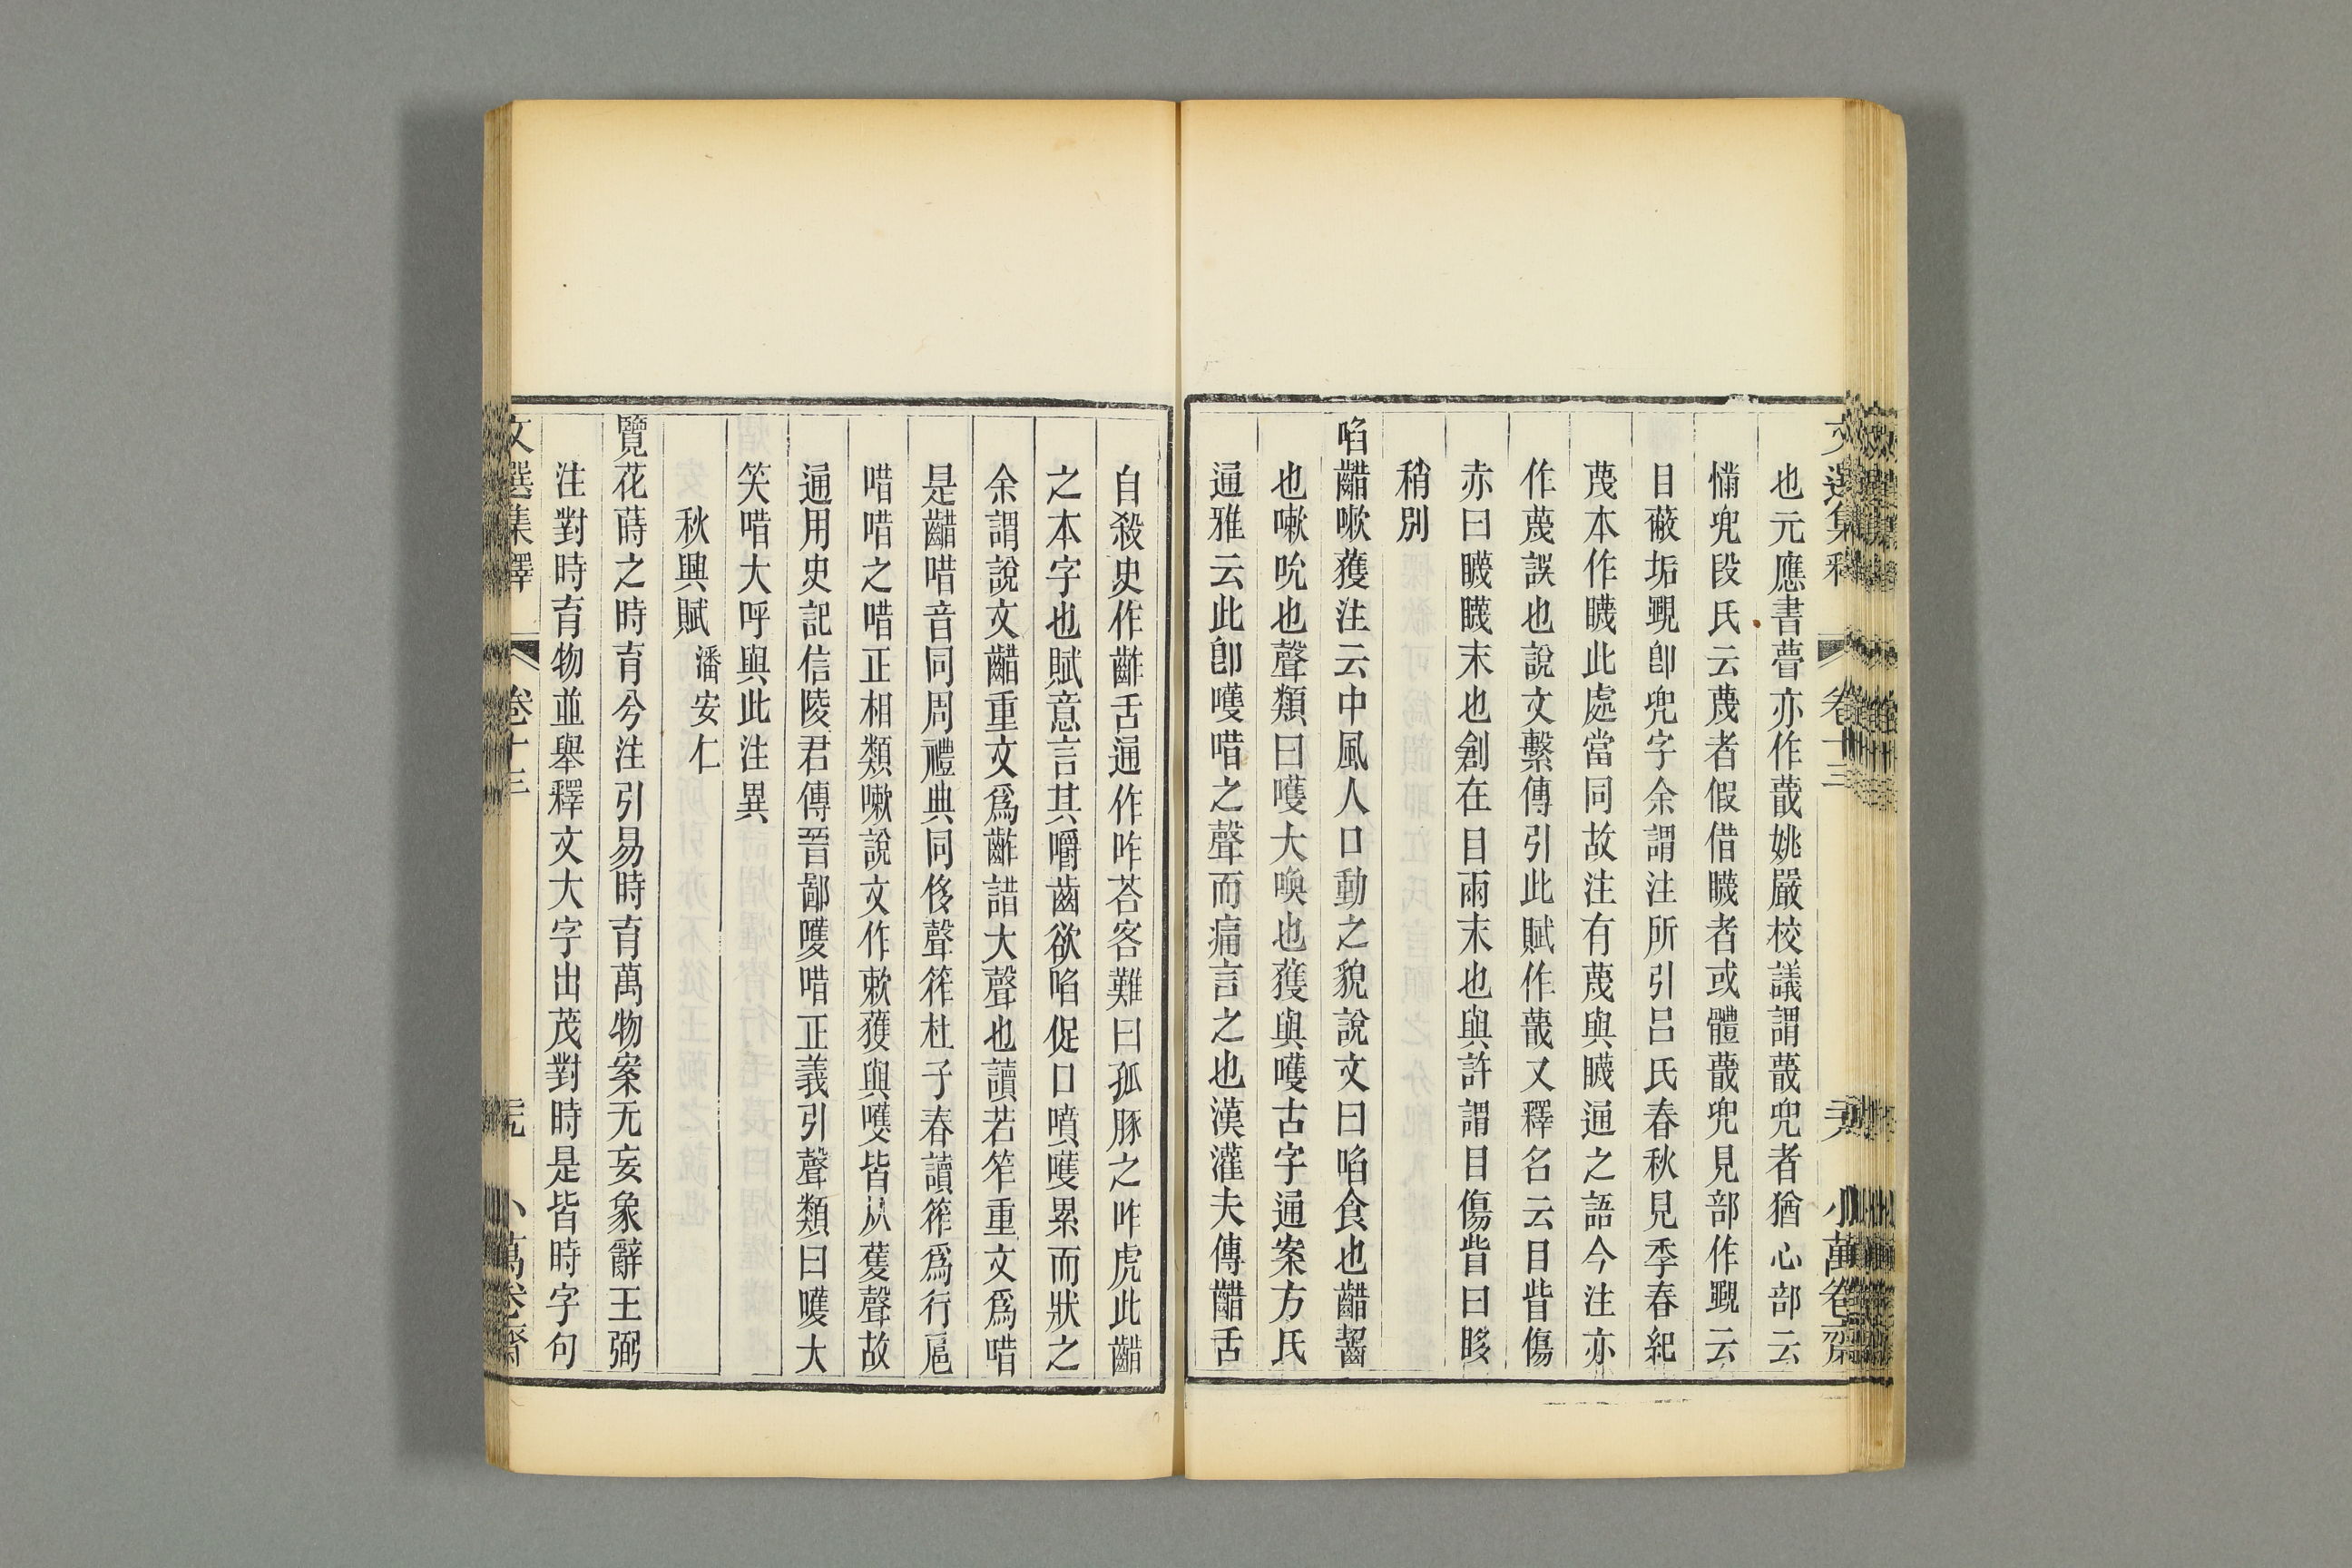 也元應書瞢亦作蕺姚嚴校議謂蕺兜者猶心部云
㒼兜段氏云蔑者假借𥉻者或體蕺兜見部作覶云
目蔽垢覶卽兜字余謂注所引呂氏春秋見季春紀
蔑本作𥉻此處當同故注有蔑與𥉻通之語今注亦
作蔑誤也說文繫傳引此賦作蕺又釋名云目眥傷
赤曰𥉻𥉻末也創在目兩末也與許謂目傷眥曰𥅻
稍別
啗齰嗽獲注云中風人口動之貌說文曰啗食也齰齧
也嗽吮也聲類曰嚄大喚也獲與嚄古字通案方氏
通雅云此卽嚄唶之聲而痛言之也漢灌夫傳齰舌
自殺史作齚舌通作咋荅客難曰孤豚之咋虎此齰
之本字也賦意言其嚼齒欲啗促口噴嚄累而狀之
余謂說文齰重文爲齚諎大聲也讀若笮重文爲唶
是齰唶音同周禮典同侈聲筰杜子春讀筰爲行扈
唶唶之唶正相類嗽說文作欶獲與嚄皆从蒦聲故
通用史記信陵君傳晉鄙嚄唶正義引聲類曰嚄大
笑唶大呼與此注異
秋興賦 潘安仁
覽花蒔之時育兮注引易時育萬物案无妄象辭王弼
注對時育物並舉釋文大字出茂對時是皆時字句
文選集釋 卷十三 小萬卷齋